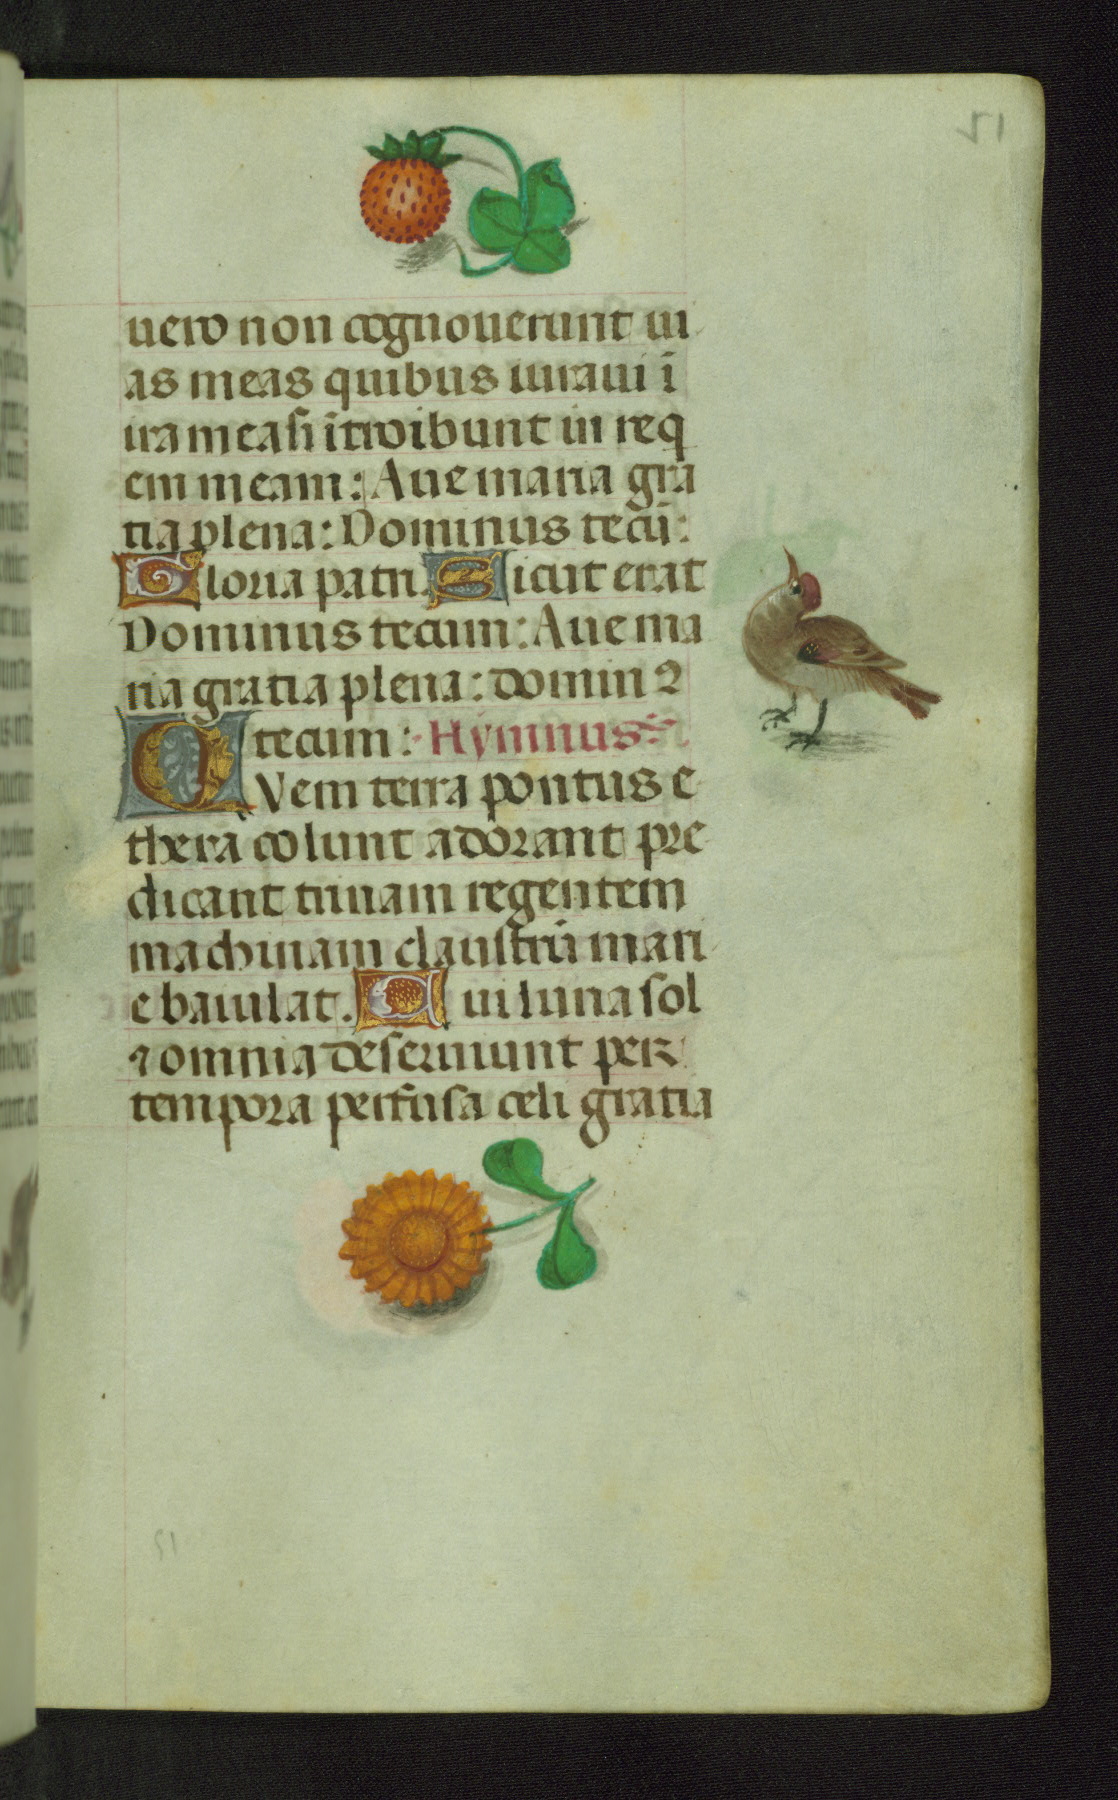 uero non cognouerunt ui
as meas quibus iuraui ī
ira mea si ītroibunt in req
em meam: Aue maria gra
tia plena: Dominus tecū:
Gloria patri. Sicut erat
Dominus tecum: Aue ma
ria gratia plena: domin9
tecum: Hymnus
QVem terra pontus e
thera colunt adorant pre
dicant trinam regentem
machinam claustrū mari
e baiulat. Cui luna sol
⁊ omnia deseruiunt per
tempora perfusa celi gratia